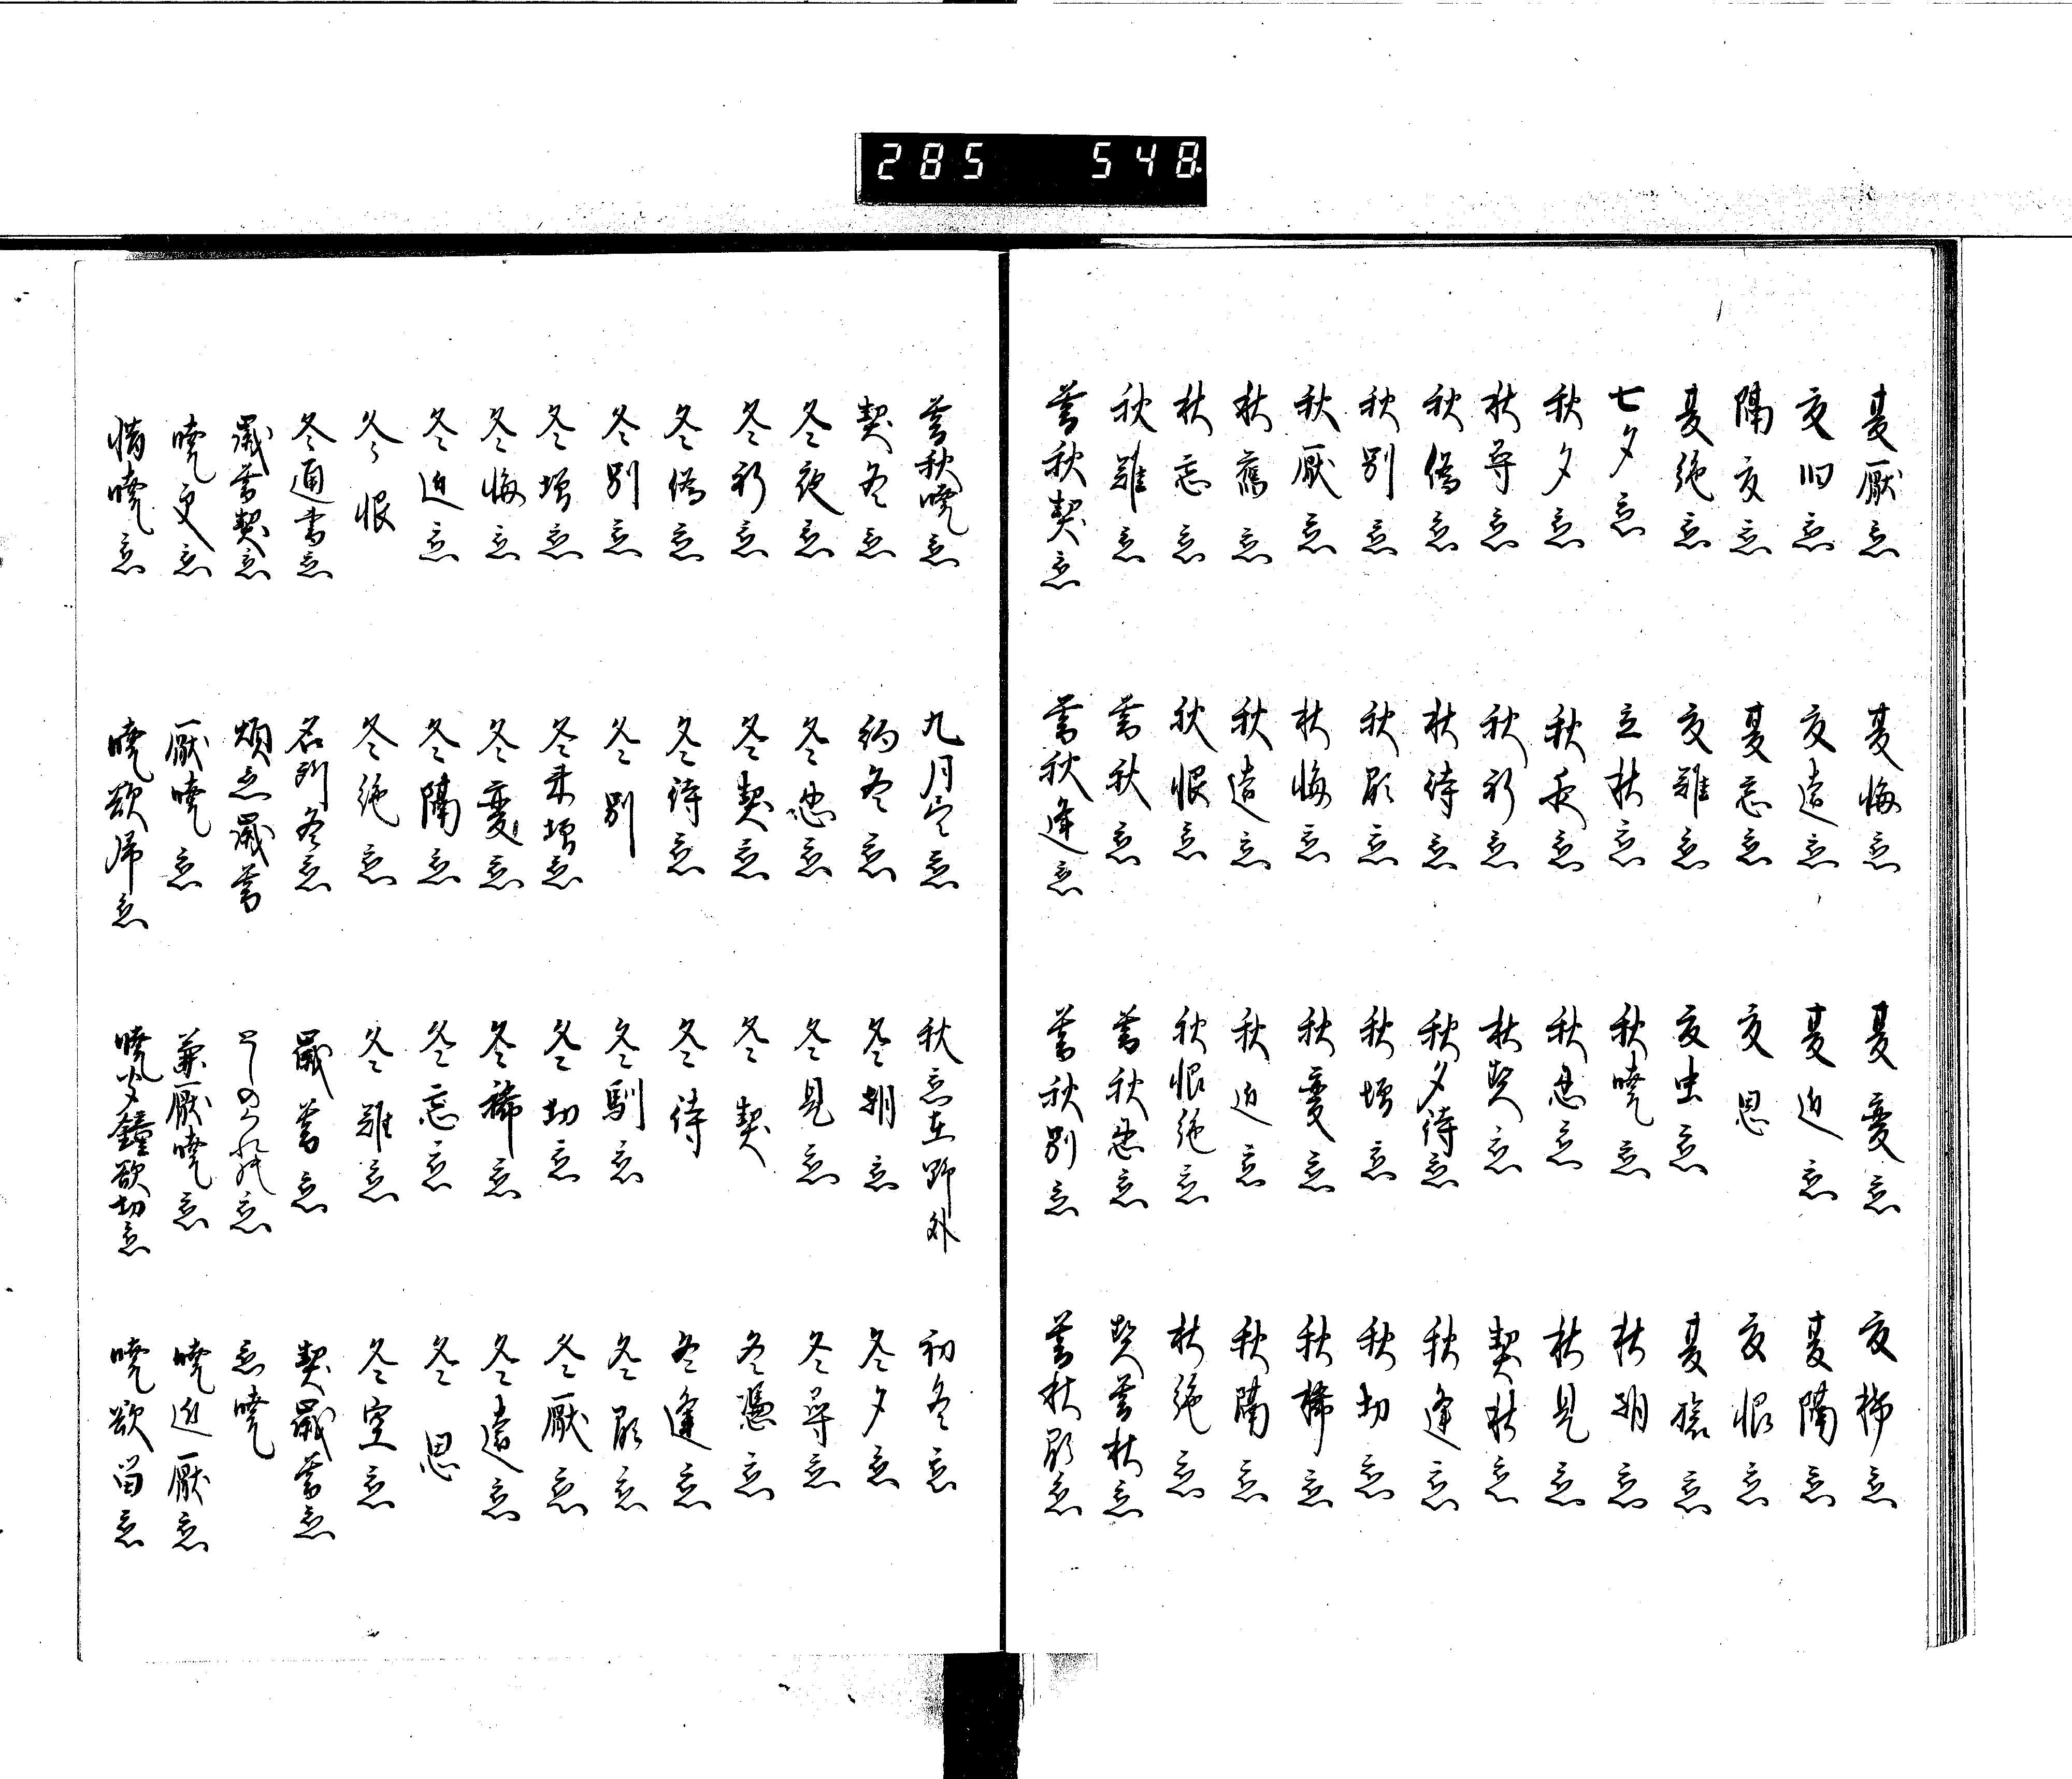 285 548
夏厭恋 夏悔恋 夏変恋 夏稀恋
夏旧恋 夏遠恋 夏近恋 夏隔恋
隔夏恋 夏忘恋 夏思 夏恨恋
夏絶恋 夏難恋 夏虫恋 夏旅恋
七夕恋 立秋恋 秋暁恋 秋朝恋
秋夕恋 秋夜恋 秋忍恋 秋見恋
秋尋恋 秋祈恋 秋契恋 契秋恋
秋偽恋 秋待恋 秋夕待恋 秋逢恋
秋別恋 秋顕恋 秋増恋 秋切恋
秋厭恋 秋悔恋 秋変恋 秋稀恋
秋舊恋 秋遠恋 秋近恋 秋隔恋
秋忘恋 秋恨恋 秋恨絶恋 秋絶恋
秋難恋 暮秋恋 暮秋忍恋 契暮秋恋
暮秋契恋 暮秋逢恋 暮秋別恋 暮秋顕恋
暮秋暁恋 九月尽恋 秋恋在野外 初冬恋
契冬恋 約冬恋 冬朝恋 冬夕恋
冬夜恋 冬忍恋 冬見恋 冬尋恋
冬祈恋 冬契恋 冬契 冬憑恋
冬偽恋 冬待恋 冬待 冬逢恋
冬別恋 冬別 冬馴恋 冬顕恋
冬増恋 冬来増恋 冬切恋 冬厭恋
冬悔恋 冬変恋 冬稀恋 冬遠恋
冬近恋 冬隔恋 冬忘恋 冬思
冬恨 冬絶恋 冬難恋 冬空恋
冬通書恋 名所冬恋 歳暮恋 契歳暮恋
歳暮契恋 煩恋歳暮 恋 恋暁
暁更恋 厭暁恋 兼厭暁恋 暁近厭恋
惜暁恋 暁欲帰恋 暁聞鐘欲切恋 暁欲留恋